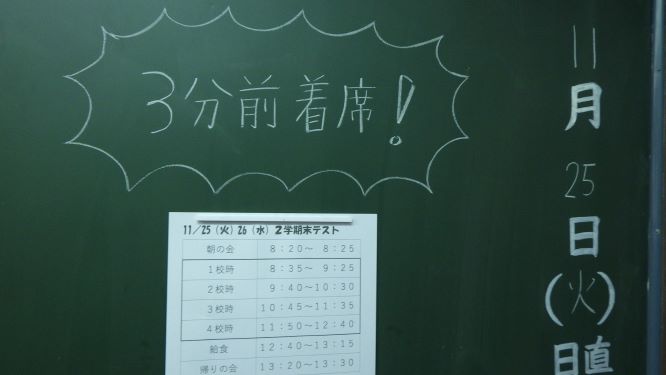 3分前着席!
11月25日(火)日直
11/25(火)26(水)2学期末テスト
朝の会 8:20～ 8:25
1校時 8:35～ 9:25
2校時 9:40～10:30
3校時 10:45～11:35
4校時 11:50～12:40
給食 12:40～13:15
帰りの会 13:20～13:30